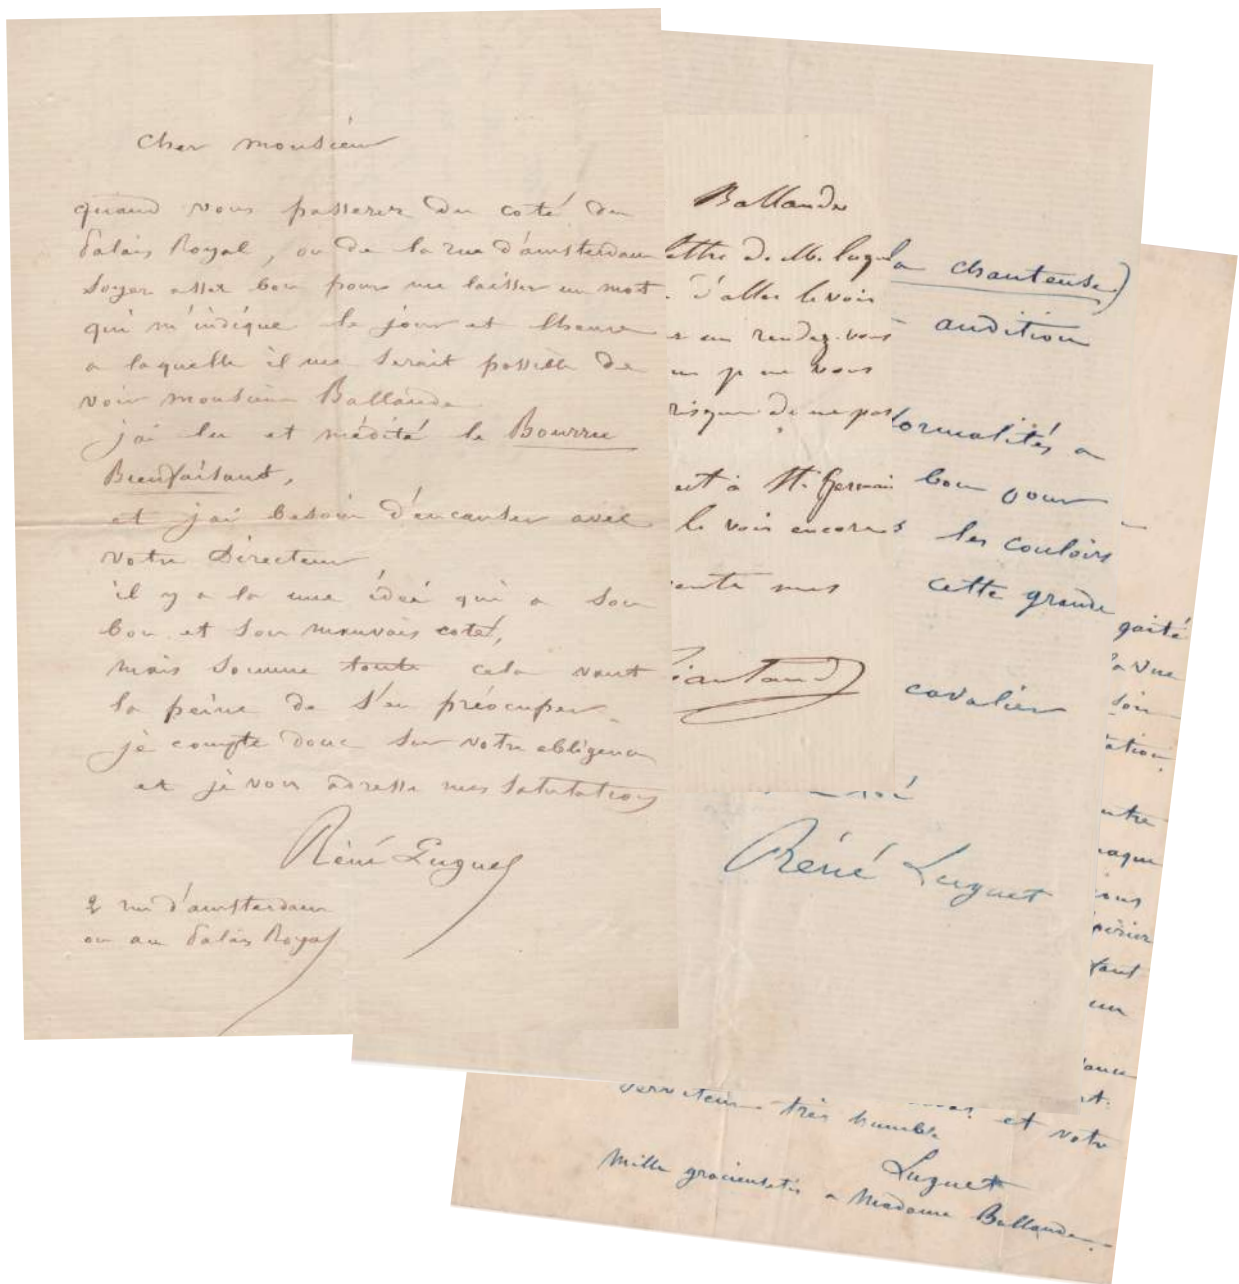 Cher monsieur
quand vous passerez du coté du
Palais Royal, ou de la rue d'amsterdam
Soyez assez bon pour me laisser un mot
qui m'indique le jour et lheure
a laquelle il me serait possible de
voir monsieur Ballande
j'ai lu et médité le Bourru
Bienfaisant,
et j'ai besoin d'en causer avec
votre Directeur
il y a la une idée qui a son
bon et son mauvais coté,
mais somme toute cela vaut
la peine de s'en préocuper
je compte donc sur votre obligence
et je vous adresse mes salutations
Réné Luguet
2 rue d'amsterdam
ou au Palais Royal
Ballande
ettre de M. Lugu
d'aller le voir
r un rendez-vous
risque de ne pas
est à St. Germain
le voir encore
ente mes
la chanteuse)
audition
formalités a
bon pour
les couloirs
cette grande
cavalier
Réné Luguet
gaité
la vue
soir
tation
ntre
aque
ious
périer
faut
un
ance
et votre
serviteur très humble
Luguet
Mille gracieusetés a Madame Ballande.